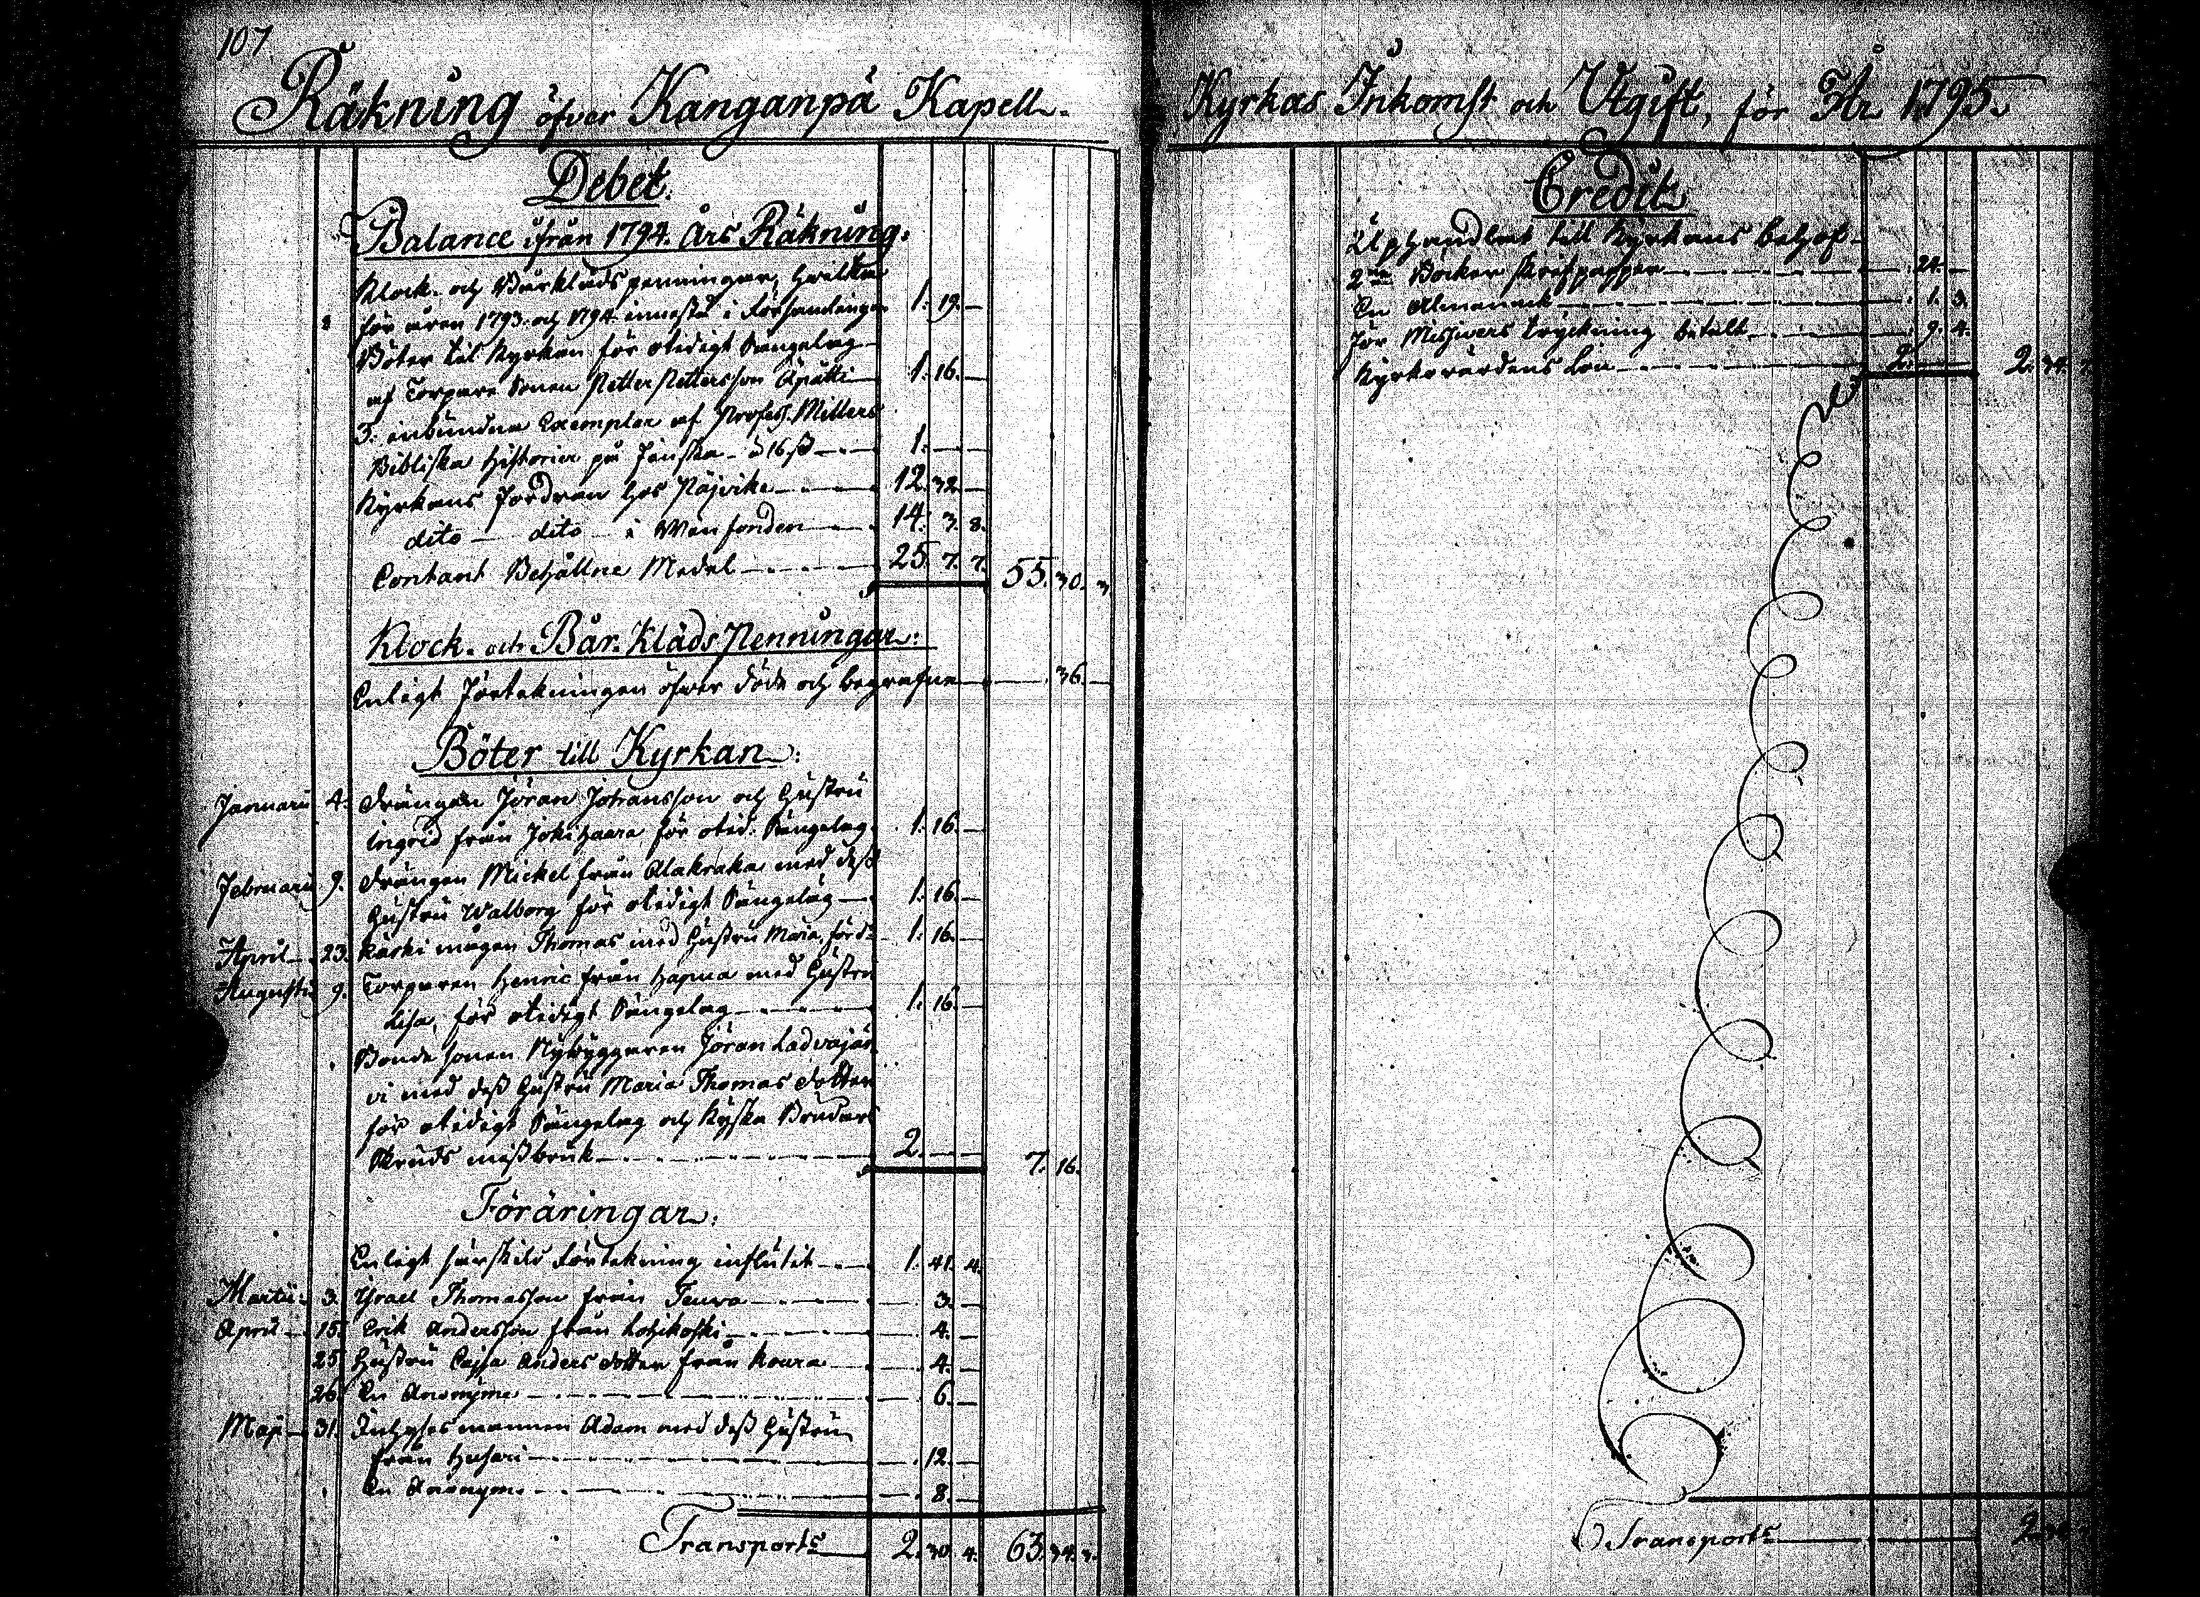 107.
Räkning öfver Kanganpä Kapell-
Debet.
Balance ifrån 1794. års Räkning.
Klock- och Bårklädspenningar, hvilka
för åren 1793. och 1794. innestå i Församlingen 1. 19. —
Böter til Kyrkan för otidigt Sängelag
af Torpare Sonen Petter Pettersson Äpätti 1. 16. —
3. inbundna Exemplar af Profess. Millers
Bibliska Historier på finska à 16 ß 1. — —
Kyrkans fordran hos Päjvike 12. 32. —
dito — dito — i Wen fonden 14. 3. 8.
Contant Behållne Medel 25. 7. 7. 55. 30. 3.
Klock- och Bår-Kläds Penningar:
Enligt Förtekningen öfver döde och begrafne 36. —
Böter till Kyrkan:
Januarii 4. Drängen Jöran Johansson och Hustru
Ingrid från Jokihaara för otid. Sängelag 1. 16. —
Februarii 9. Drängen Mickel från Alakraka med dess
Hustru Walborg för otidigt Sängelag 1. 16. —
April 23. Kaski mågen Thomas med Hustru Maria, förd: 1. 16. —
Augusti 9. Torparen Henric från Hapua med Hustru
Lisa, för otidigt Sängelag 1. 16. —
Bonde sonen Nybyggaren Jöran Ladvajär-
vi med dess Hustru Maria Thomas dotter
för otidigt Sängelag och Kyska Brudars
Skruds missbruk 2. — — 7. 16.
Föräringar:
Enligt särskild förtekning influtit 1. 41. 4.
Martii 3. Israel Thomasson från Teuva 3. —
April 15. Erik Andersson från Lohikoski 4. —
25. Hustru Cajsa Anders dotter från Koura 4. —
26. En Anonyme 6. —
Maji 31. Inhyses mannen Adam med dess Hustru
från Husari 12. —
En Anonyme 8. —
Transports 2. 30. 4. 63. 34. 3.
Kyrkas Inkomst och Utgift, för År 1795.
Credit
Uphandlat till Kyrkans behof-
2ne Böcker skrifpapper 24. —
En Almanack 1. 3.
För Missivers tryckning betalt 9. 4.
Kyrkovärdens Lön 2. — — 2. 34. 7.
Transports 2.